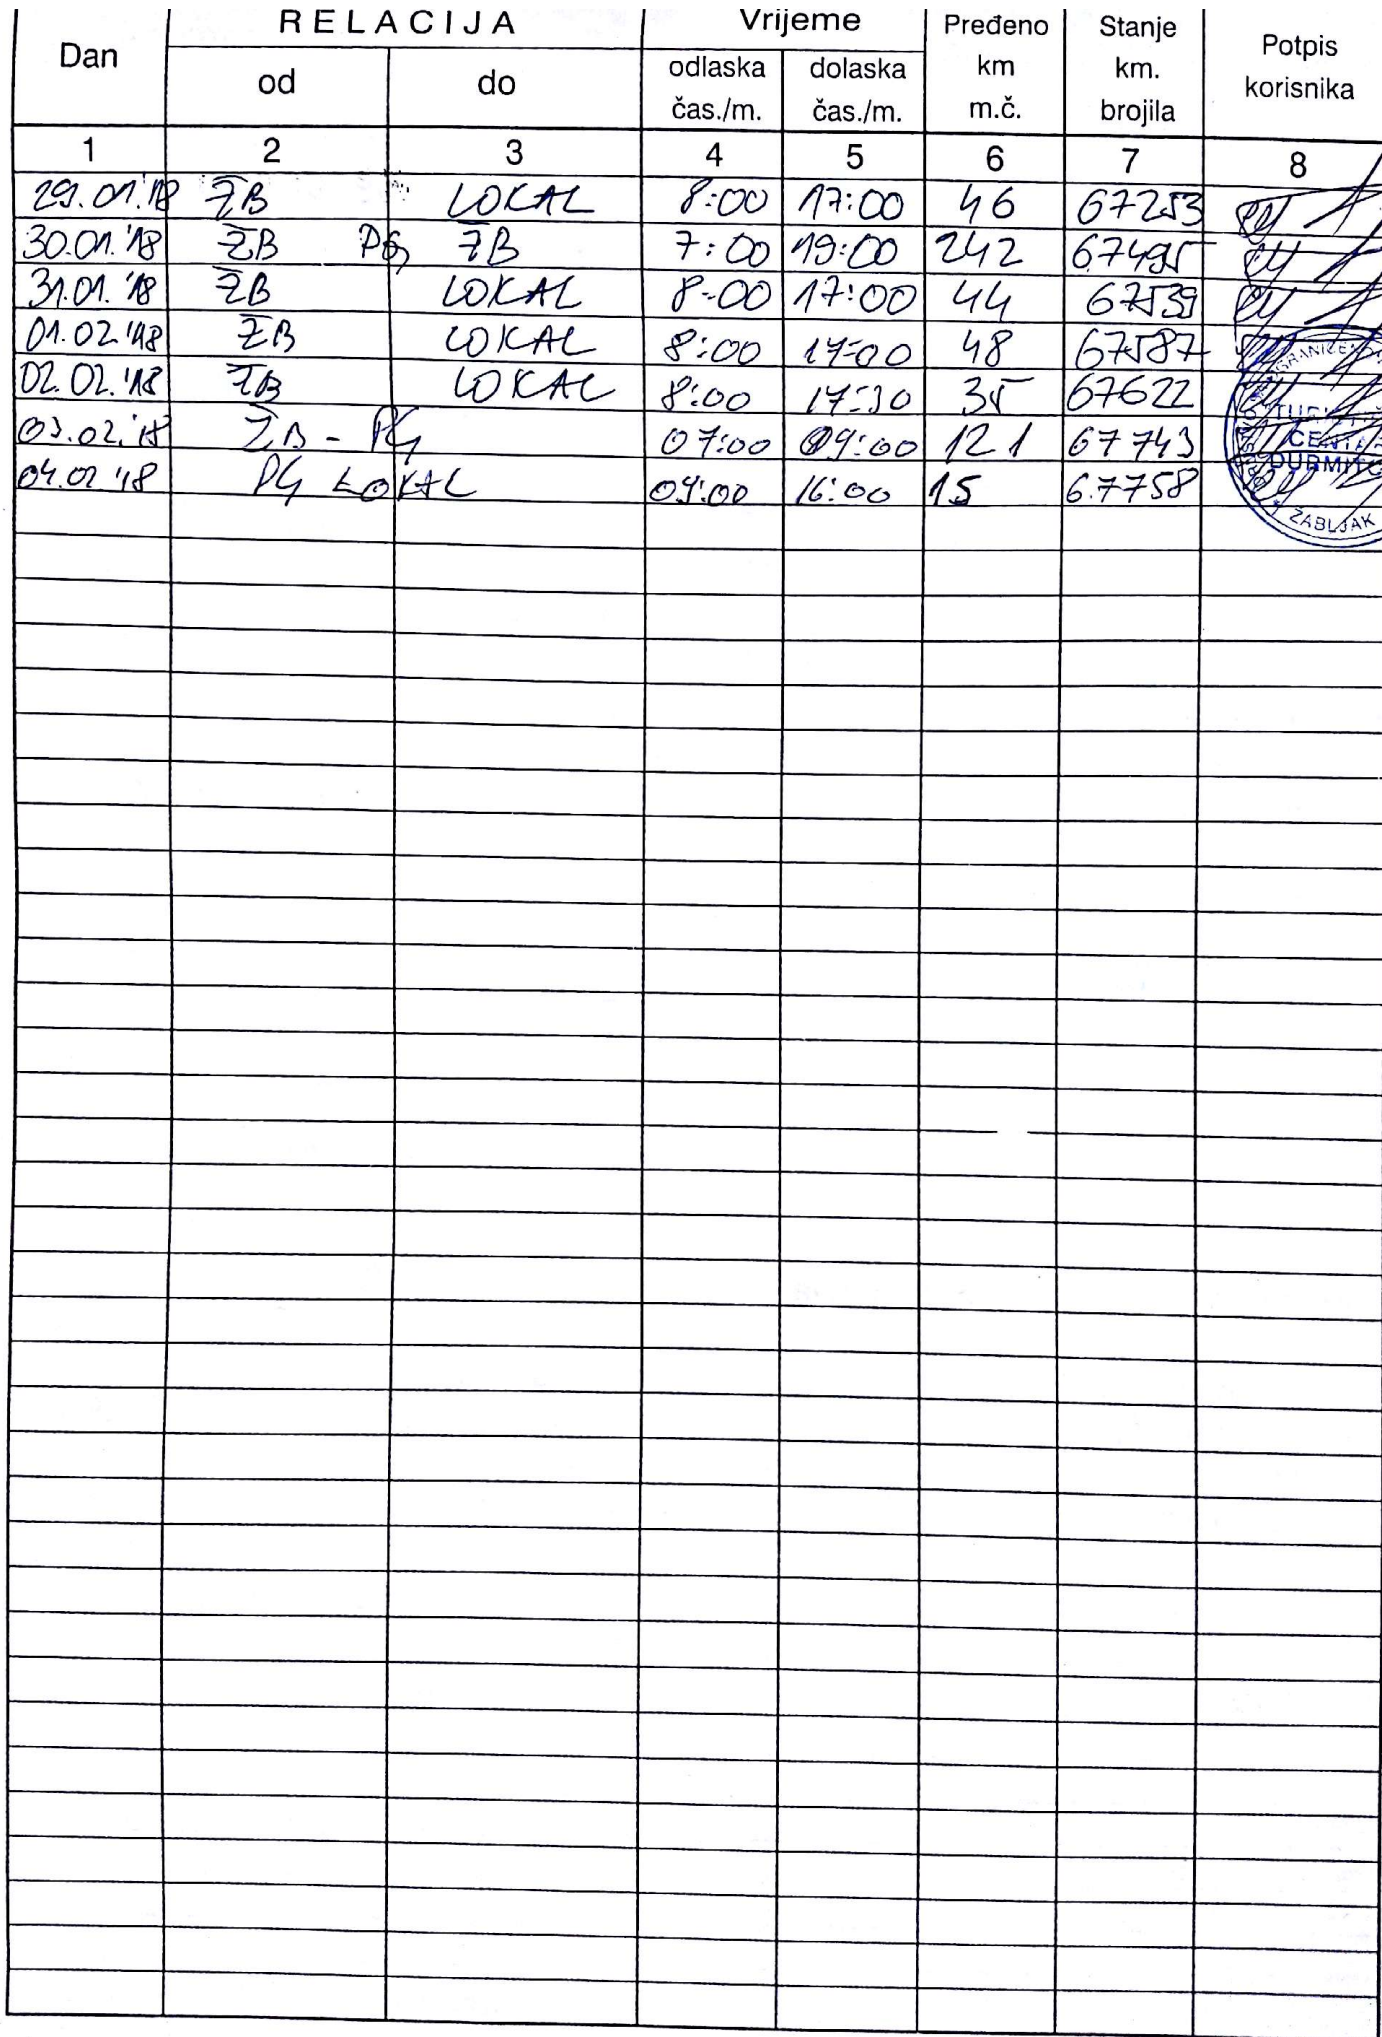 RELACIJA Vrijeme Pređeno Stanje
Dan od do odlaska dolaska km km. Potpis
čas./m. čas./m. m.č. brojila korisnika
1 2 3 4 5 6 7 8
29.01.'18 ŽB LOKAL 8:00 17:00 46 67253
30.01.'18 ŽB PG ŽB 7:00 19:00 242 67495
31.01.'18 ŽB LOKAL 8:00 17:00 44 67539
01.02.'18 ŽB LOKAL 8:00 17:00 48 67587
02.02.'18 ŽB LOKAL 8:00 17:30 35 67622
03.02.'18 ŽB - PG 07:00 09:00 121 67743
04.02 '18 PG LOKAL 09:00 16:00 15 67758
CENTAR
DURMITOR
ŽABLJAK